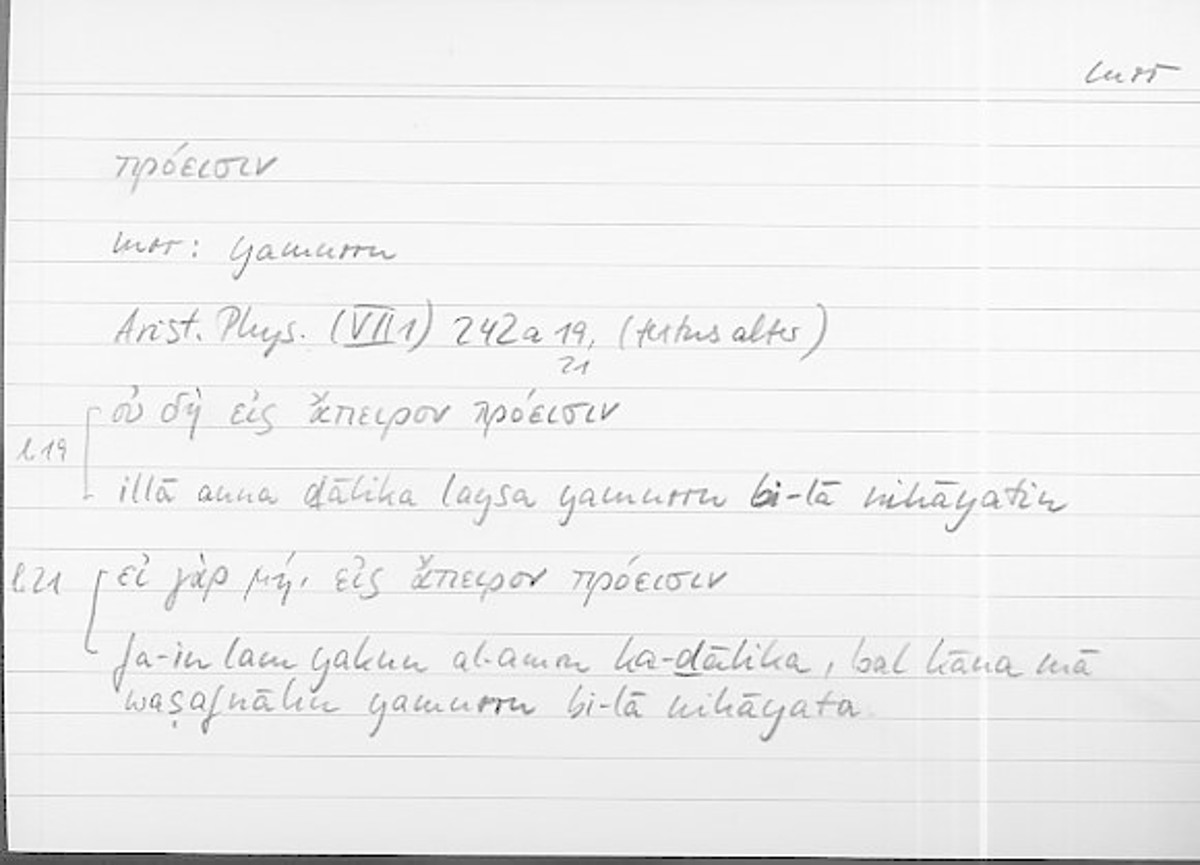 mrr
πρόεισιν
mrr: yamurru
Arist. Phys. (VII 1) 242a 19, (textus alter)
21
οὐ δὴ εἰς ἄπειρον πρόεισιν
l.19
illā anna ḏālika laysa yamurru bi-lā nihāyatin
l.21 εἰ γὰρ μή, εἰς ἄπειρον πρόεισιν
fa-in lam yakun al-amru ka-ḏālika, bal kāna mā
waṣafnāhu yamurru bi-lā nihāyata